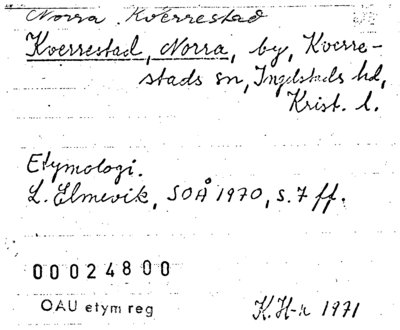 Norra Kverrestad
Kverrestad, Norra, by, Kverre-
stads sn, Ingelstads hd,
Krist. l.
Etymologi.
L. Elmevik, SOÅ 1970, s. 7 ff.
00024800
OAU etym reg
K. H-n 1971